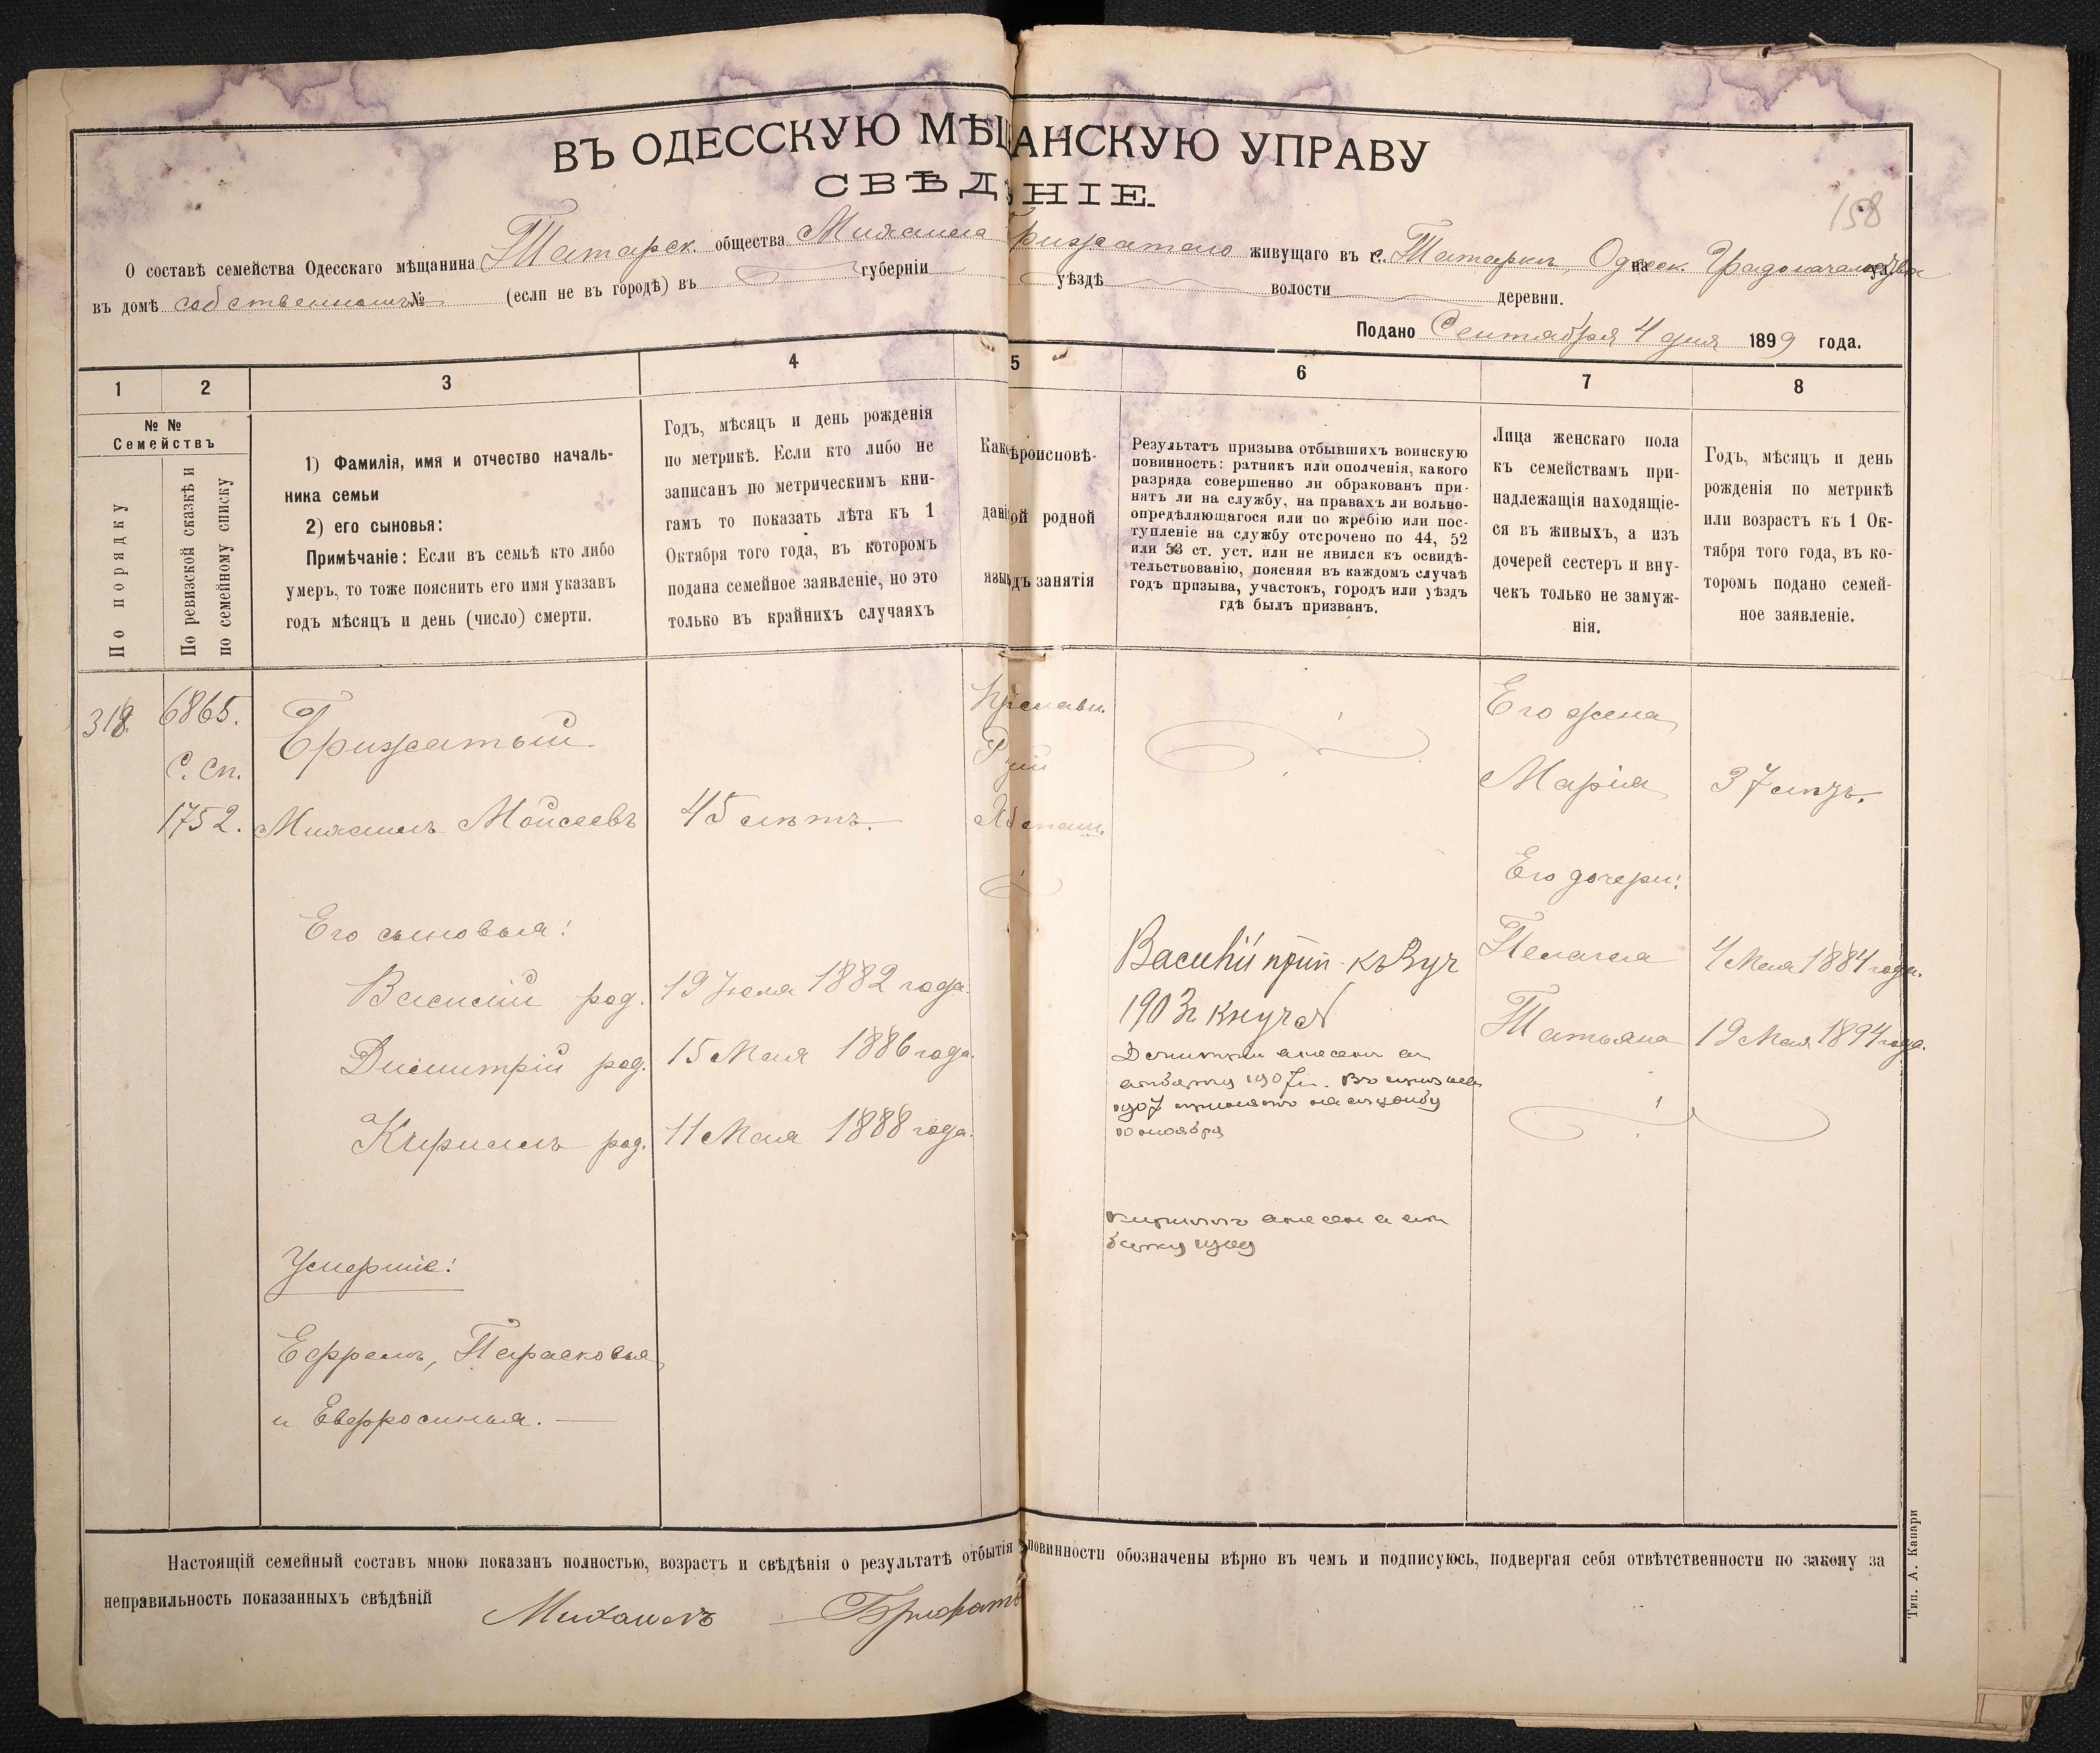 ВЪ ОДЕССКУЮ МѢЩАНСКУЮ УПРАВУ
СВѢДѢНІЕ.
158
О составѣ семейства Одесскаго мѣщанина Татарск. общества Михаила Брижатаго живущаго въ с. Татарки, Одесск. Градоначальства
въ домѣ собственномъ № (если не въ городѣ) въ губерніи уѣздѣ волости деревни.
Подано Сентября 4 дня 1899 года.
1 2 3 4 5 6 7 8
№ № Семействъ
По порядку
По ревизской сказкѣ и по семейному списку
1) Фамилія, имя и отчество началь-
ника семьи
2) его сыновья:
Примѣчаніе: Если въ семьѣ кто либо
умеръ, то тоже пояснить его имя указавъ
годъ мѣсяцъ и день (число) смерти.
Годъ, мѣсяцъ и день рожденія
по метрикѣ. Если кто либо не
записанъ по метрическимъ кни-
гамъ то показать лѣта къ 1
Октября того года, въ которомъ
подана семейное заявленіе, но это
только въ крайнихъ случаяхъ
Как ѣроисповѣ-
дані ой родной
язы дъ занятія
Результатъ призыва отбывшихъ воинскую
повинность: ратникъ или ополченія, какого
разряда совершенно ли обракованъ при-
нятъ ли на службу, на правахъ ли вольно-
опредѣляющагося или по жребію или пос-
тупленіе на службу отсрочено по 44, 52
или 53 ст. уст. или не явился къ освидѣ-
тельствованію, поясняя въ каждомъ случаѣ
годъ призыва, участокъ, городъ или уѣздъ
гдѣ былъ призванъ.
Лица женскаго пола
къ семействамъ при-
надлежащія находящіе-
ся въ живыхъ, а изъ
дочерей сестеръ и вну-
чекъ только не замуж-
нія.
Годъ, мѣсяцъ и день
рожденія по метрикѣ
или возрастъ къ 1 Ок-
тября того года, въ ко-
торомъ подано семей-
ное заявленіе.
318. 6865. Брижатый Его жена
С. Сп. Марія 37 лѣтъ.
1752. Михаилъ Моисеевъ 45 лѣтъ.
Его дочери:
Его сыновья:
Василій род. 19 Іюля 1882 года. Василій прип. къ 3 уч Пелагея 4 Мая 1884 года.
1903 г.
Татьяна 19 Мая 1894 года.
Димитрій род. 15 Мая 1886 года.
1907 г. Въ призывѣ
1907 принятъ на службу
ноября
Кириллъ род. 11 Мая 1888 года.
Кириллъ
1909
Умершіе:
Ефремъ, Парасковья
и Евфросинья.
Настоящій семейный составъ мною показанъ полностью, возрастъ и свѣдѣнія о результатѣ отбытія повинности обозначены вѣрно въ чемъ и подписуюсь, подвергая себя отвѣтственности по закону за
неправильность показанныхъ свѣдѣній Михаилъ Брижат
Тип. А. Капари